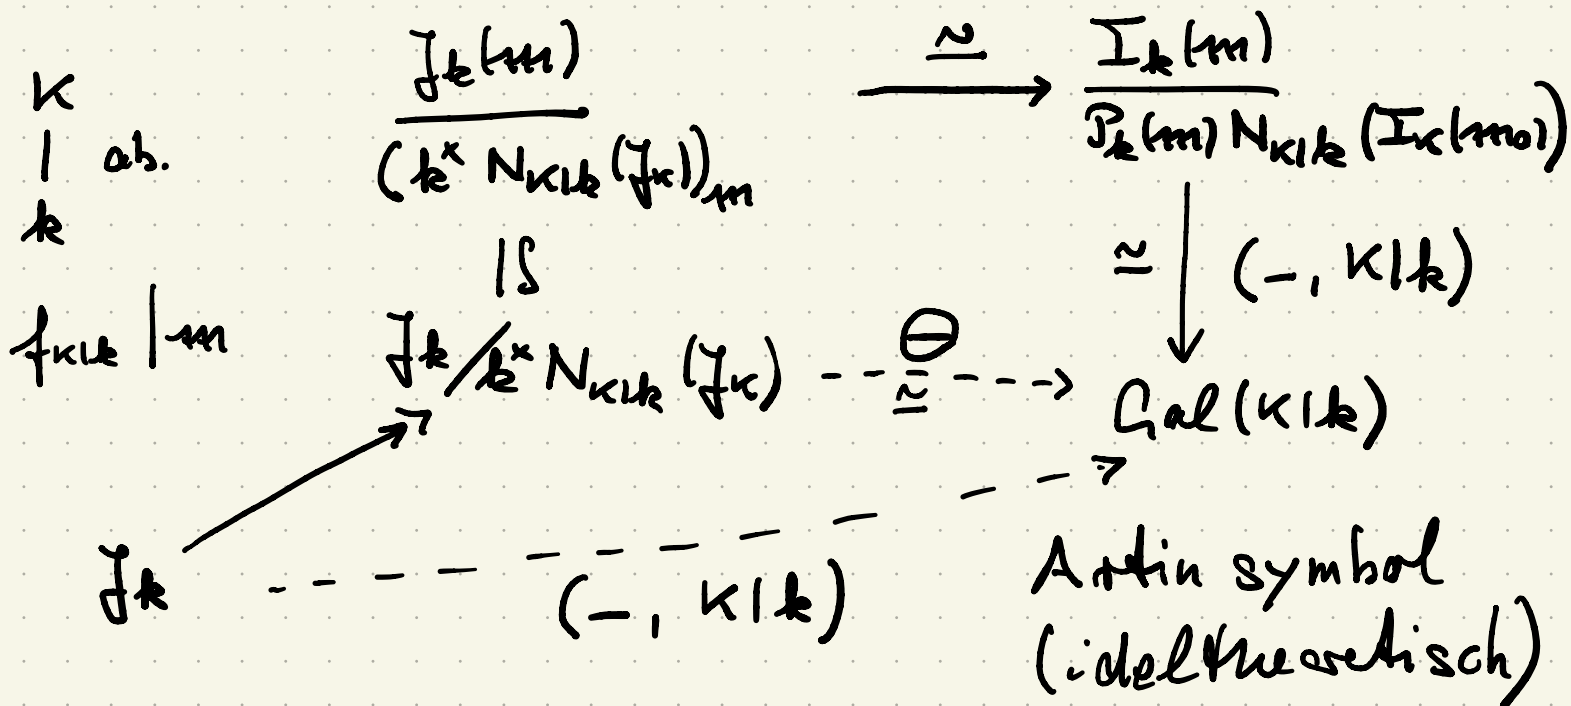 K
| ab.
k
f_{K|k} | m
J_k(m) / (k^× N_{K|k}(J_K))_m
≃
I_k(m) / P_k(m) N_{K|k}(I_K(m_0))
≃ (–, K|k)
J_k / k^× N_{K|k}(J_K)
Θ
≃
Gal(K|k)
J_k
(–, K|k)
Artin symbol
(ideltheoretisch)